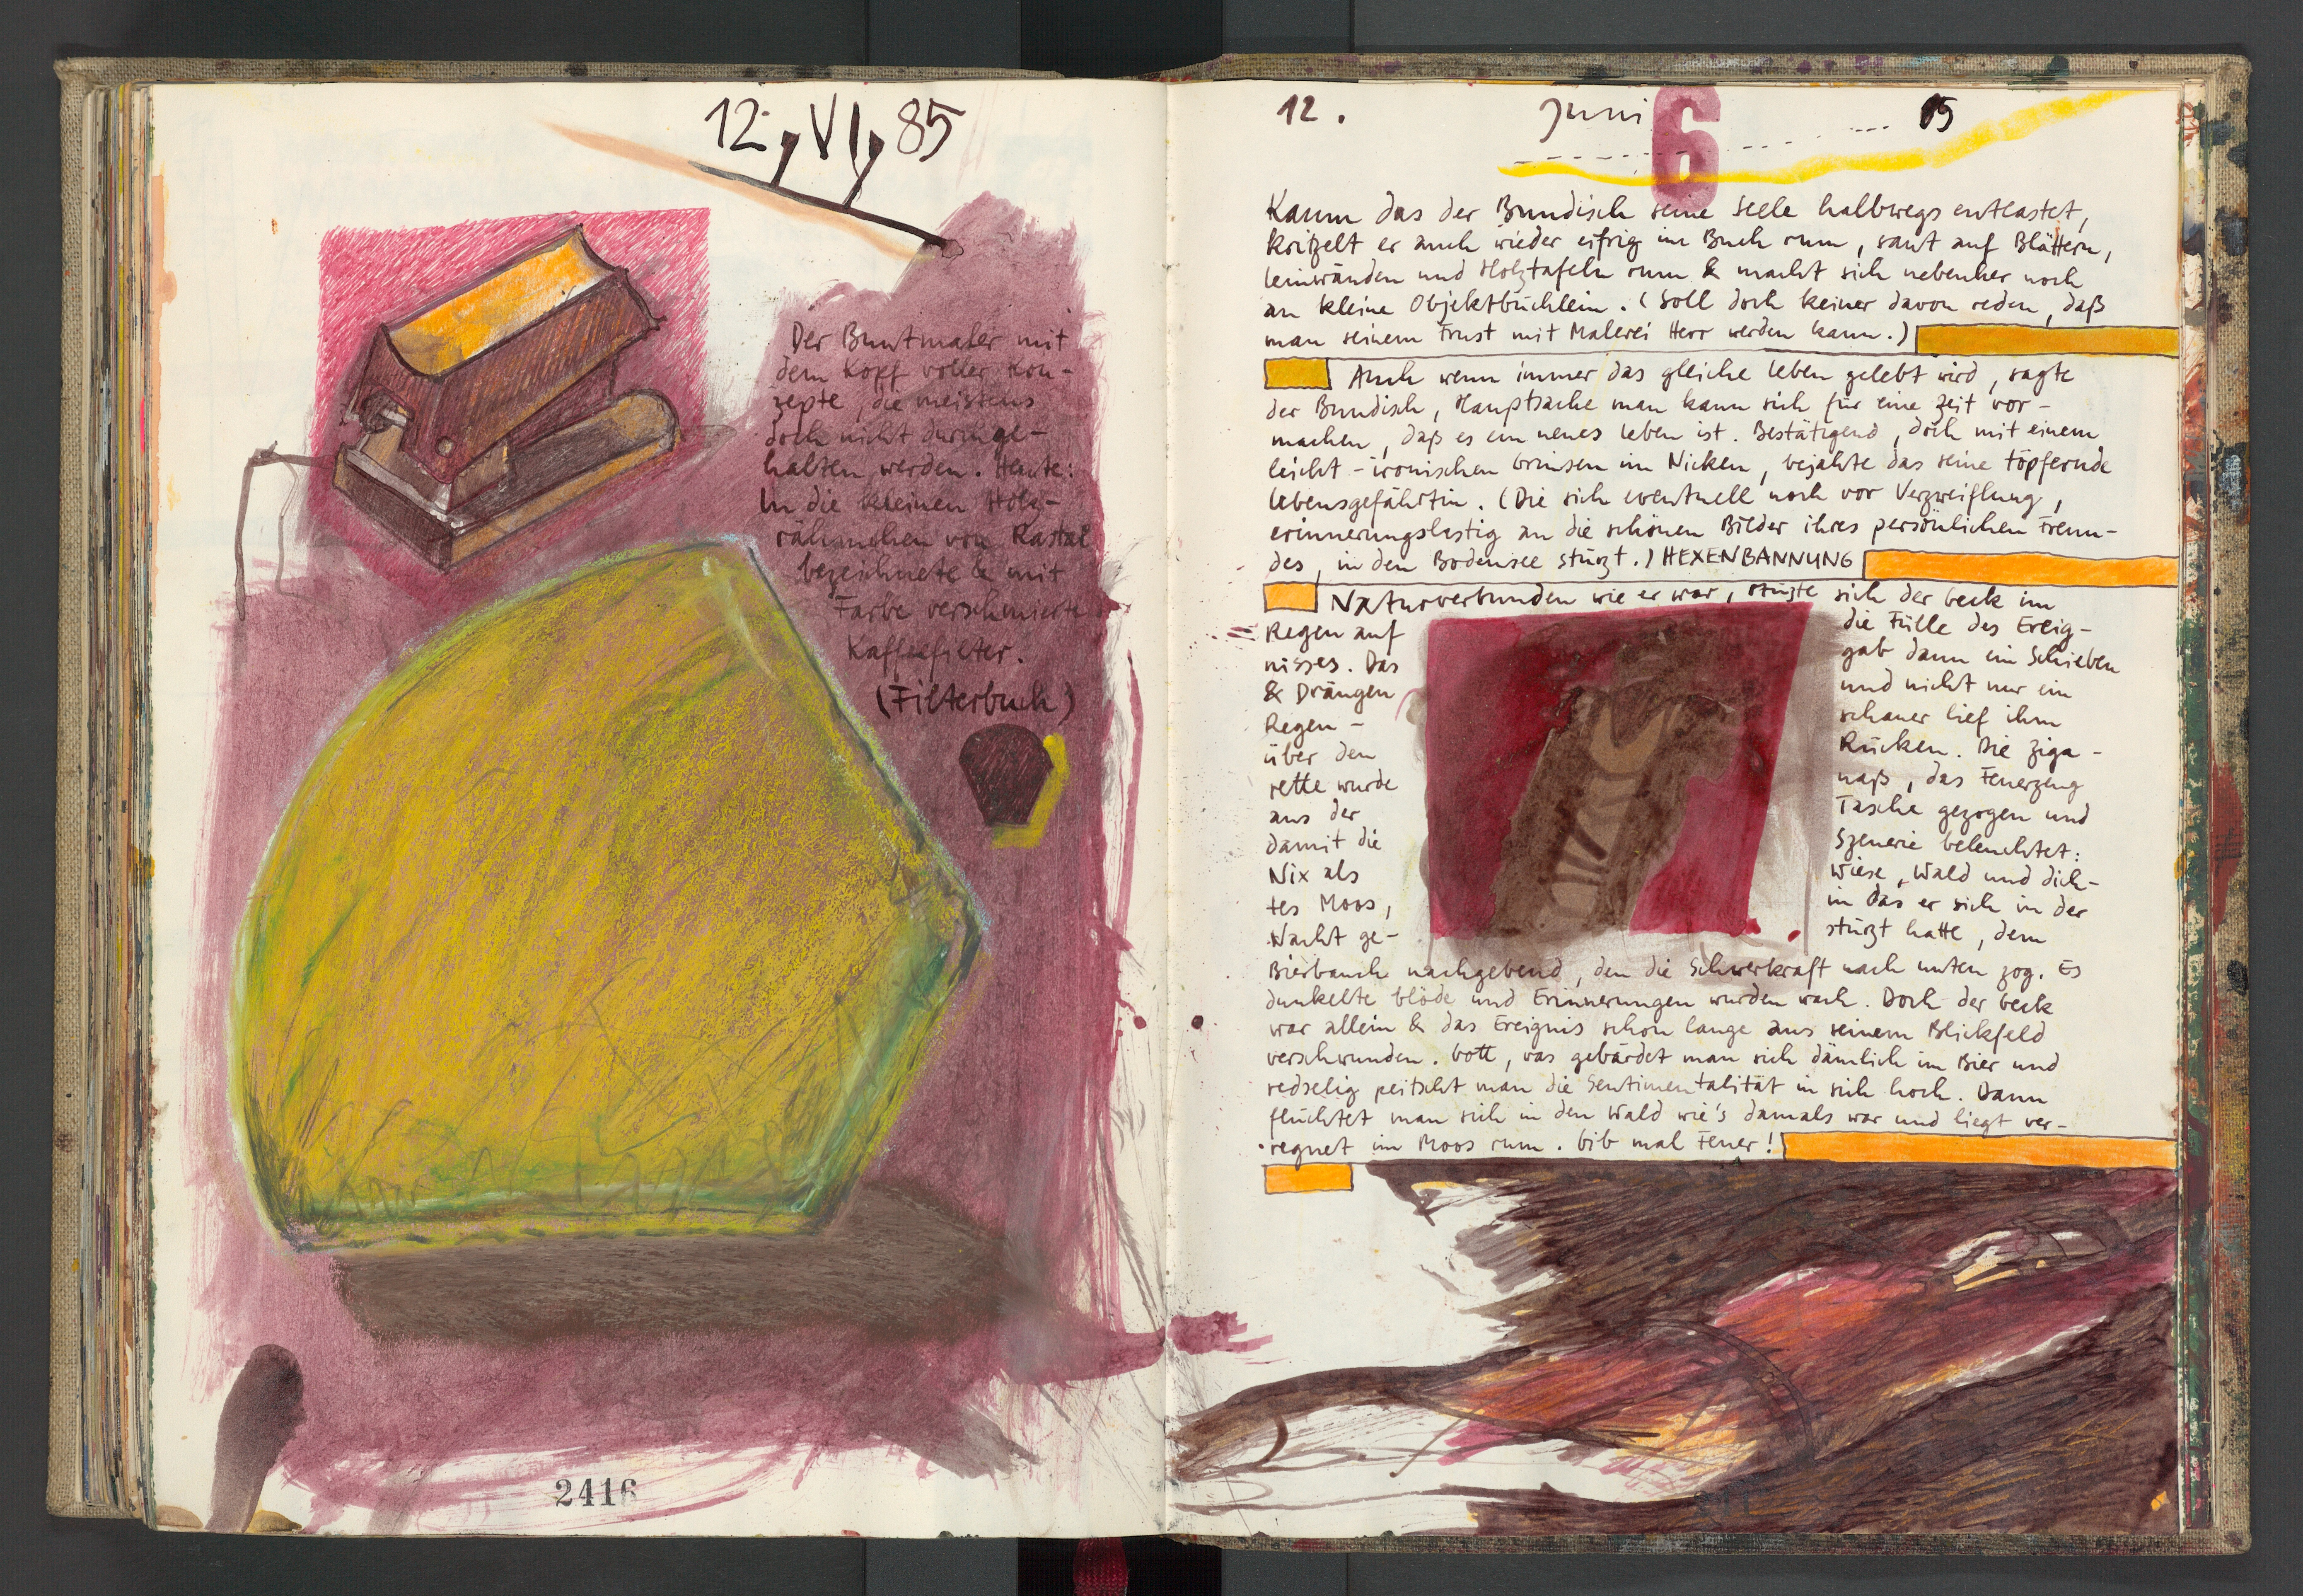 12. VI. 85
Der Buntmaler mit
dem Kopf voller Kon-
zepte, die meistens
doch nicht durchge-
halten werden. Heute:
In die kleinen Holz-
rähmchen von Rastal
bezeichnete & mit
Farbe verschmierte
Kaffeefilter.
(Filterbuch)
2416
12. Juni 6 85
Kaum das der Bundisch seine Seele halbwegs entlastet,
kritzelt er auch wieder eifrig im Buch rum, saut auf Blättern,
Leinwänden und Holztafeln rum & macht sich nebenher noch
an kleine Objektbüchlein. (Soll doch keiner davon reden, daß
man seinem Frust mit Malerei Herr werden kann.)
Auch wenn immer das gleiche Leben gelebt wird, sagte
der Bundisch, Hauptsache man kann sich für eine Zeit vor-
machen, daß es ein neues Leben ist. Bestätigend, doch mit einem
leicht-ironischen Grinsen im Nicken, bejahte das seine töpfernde
Lebensgefährtin. (Die sich eventuell noch vor Verzweiflung,
erinnerungslastig an die schönen Bilder ihres persönlichen Freun-
des, in den Bodensee stürzt.) HEXENBANNUNG
Naturverbunden wie er war, stürzte sich der Beck im
Regen auf die Fülle des Ereig-
nisses. Das gab dann ein Schieben
& Drängen und nicht nur ein
Regen- schauer lief ihm
über den Rücken. Die Ziga-
rette wurde naß, das Feuerzeug
aus der Tasche gezogen und
damit die Szenerie beleuchtet:
Nix als Wiese, Wald und dich-
tes Moos, in das er sich in der
Nacht ge- stürzt hatte, dem
Bierbauch nachgebend, den die Schwerkraft nach unten zog. Es
dunkelte blöde und Erinnerungen wurden wach. Doch der Beck
war allein & das Ereignis schon lange aus seinem Blickfeld
verschwunden. Gott, was gebärdet man sich dämlich im Bier und
redselig peitscht man die Sentimentalität in sich hoch. Dann
flüchtet man sich in den Wald wie's damals war und liegt ver-
regnet im Moos rum. Gib mal Feuer!